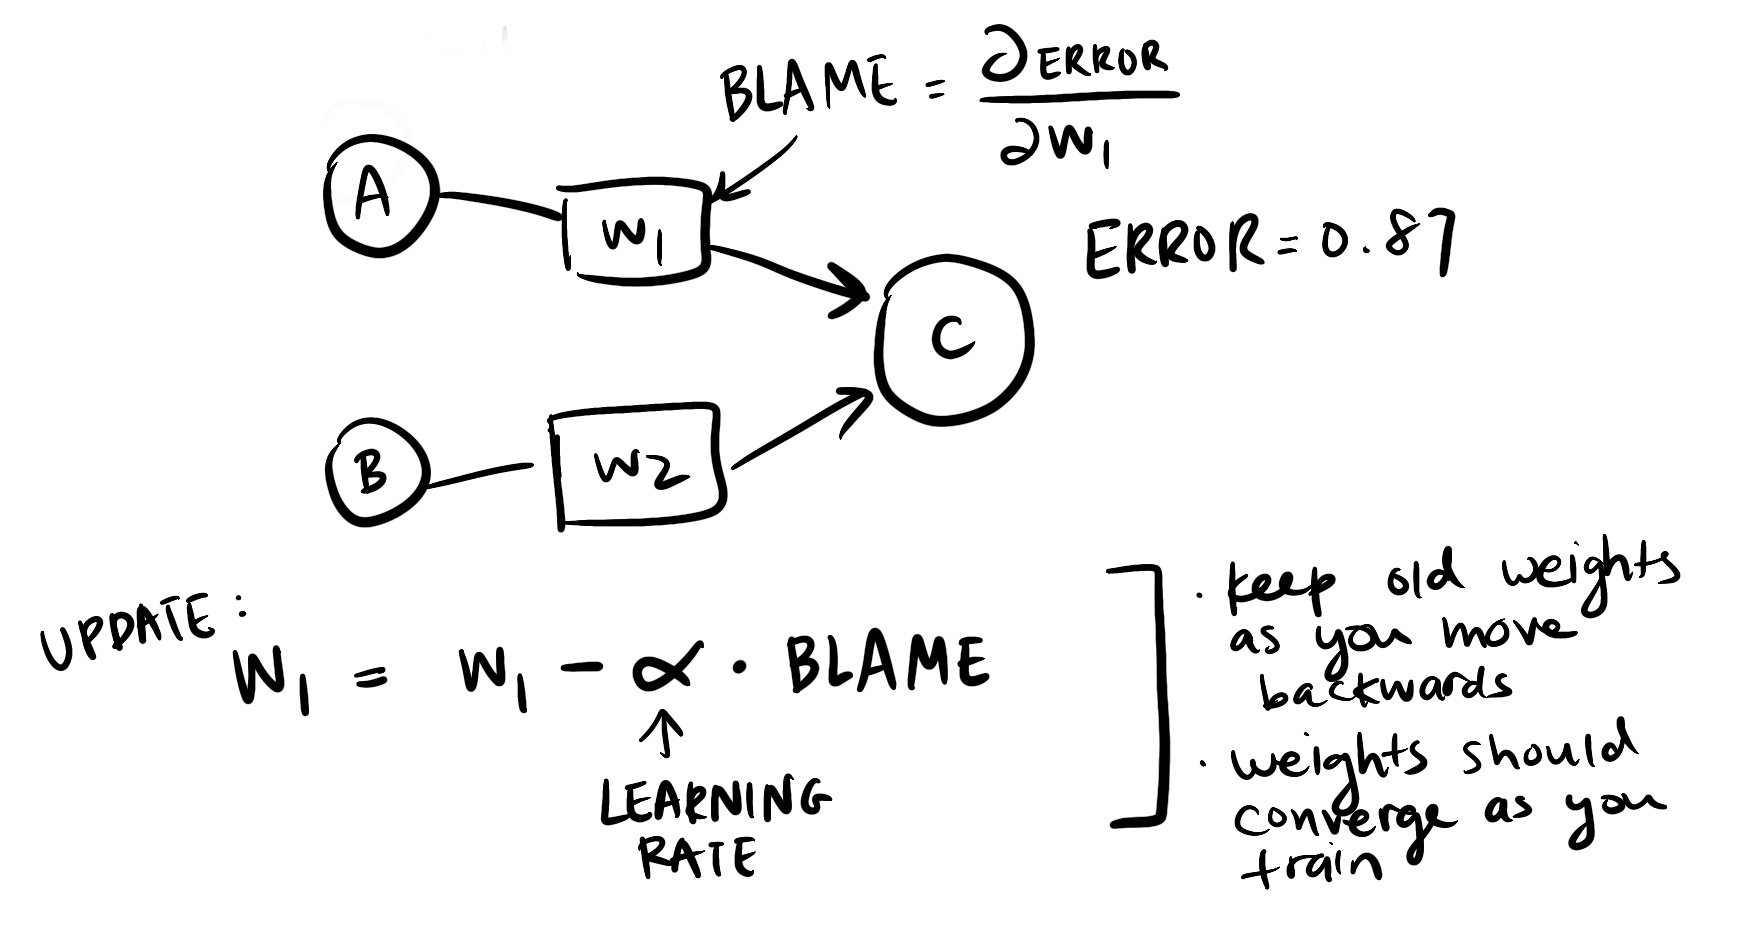 BLAME = ∂ERROR / ∂W1
A
W1
ERROR = 0.87
C
B
W2
UPDATE:
W1 = W1 - α · BLAME
↑
LEARNING
RATE
· keep old weights
as you move
backwards
· weights should
converge as you
train